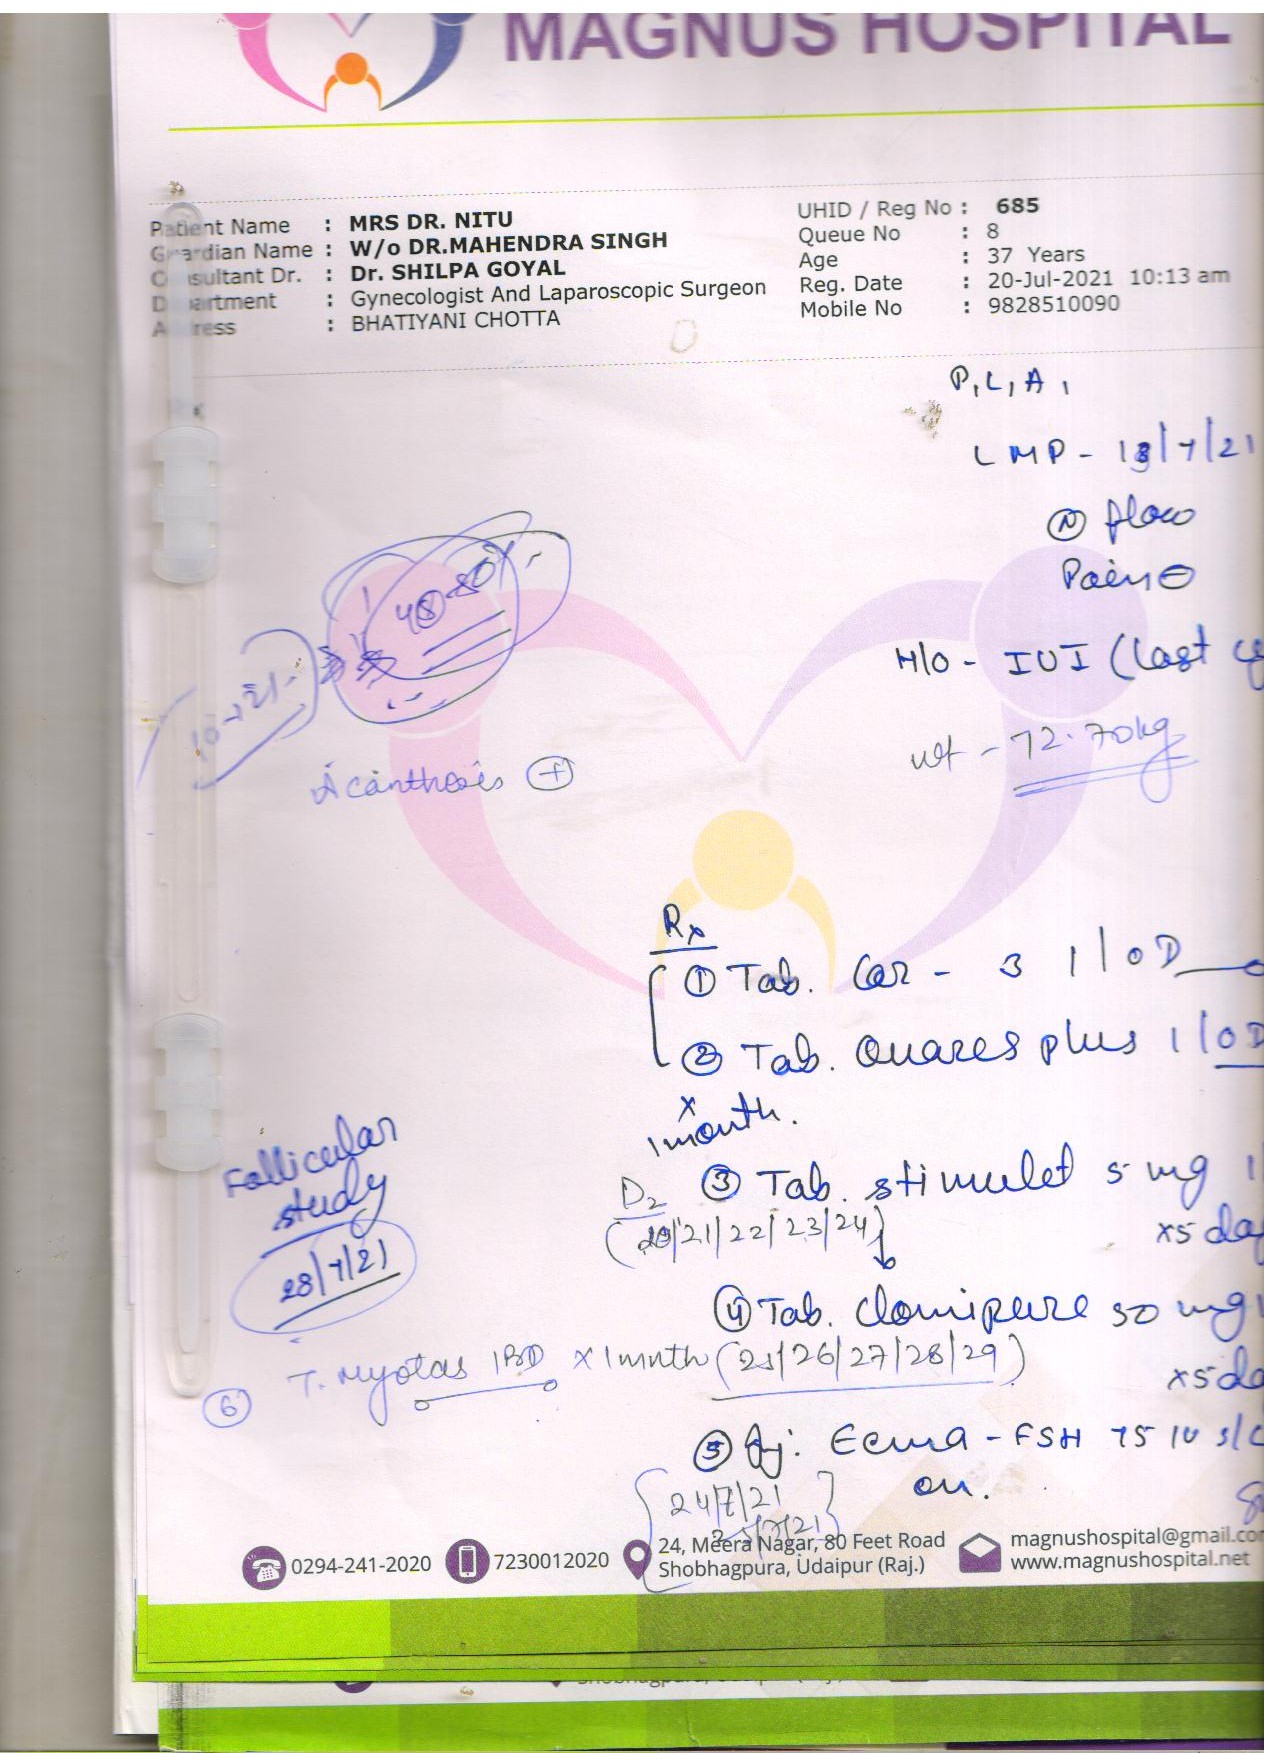 MAGNUS HOSPITAL
Patient Name : MRS DR. NITU
Guardian Name : W/o DR.MAHENDRA SINGH
Consultant Dr. : Dr. SHILPA GOYAL
Department : Gynecologist And Laparoscopic Surgeon
Address : BHATIYANI CHOTTA
UHID / Reg No : 685
Queue No : 8
Age : 37 Years
Reg. Date : 20-Jul-2021 10:13 am
Mobile No : 9828510090
P1L1A1
LMP - 18/7/21
(N) flow
Pain ⊖
H/o - IUI (last
wt - 72.70kg
Acanthosis (+)
Rx
① Tab. - 3 1/OD
② Tab. plus 1/OD
x
1month.
③ Tab. stimulet 5 mg
D2
(20/21/22/23/24)
x5 day
④ Tab. 50 mg
T. Myotas 1BD x 1mnth (25/26/27/28/29)
⑥
x5da
⑤ Inj: - FSH 75 IU S/C
on.
24/7/21
Follicular
study
28/7/21
0294-241-2020
7230012020
24, Meera Nagar, 80 Feet Road
Shobhagpura, Udaipur (Raj.)
magnushospital@gmail.co
www.magnushospital.net